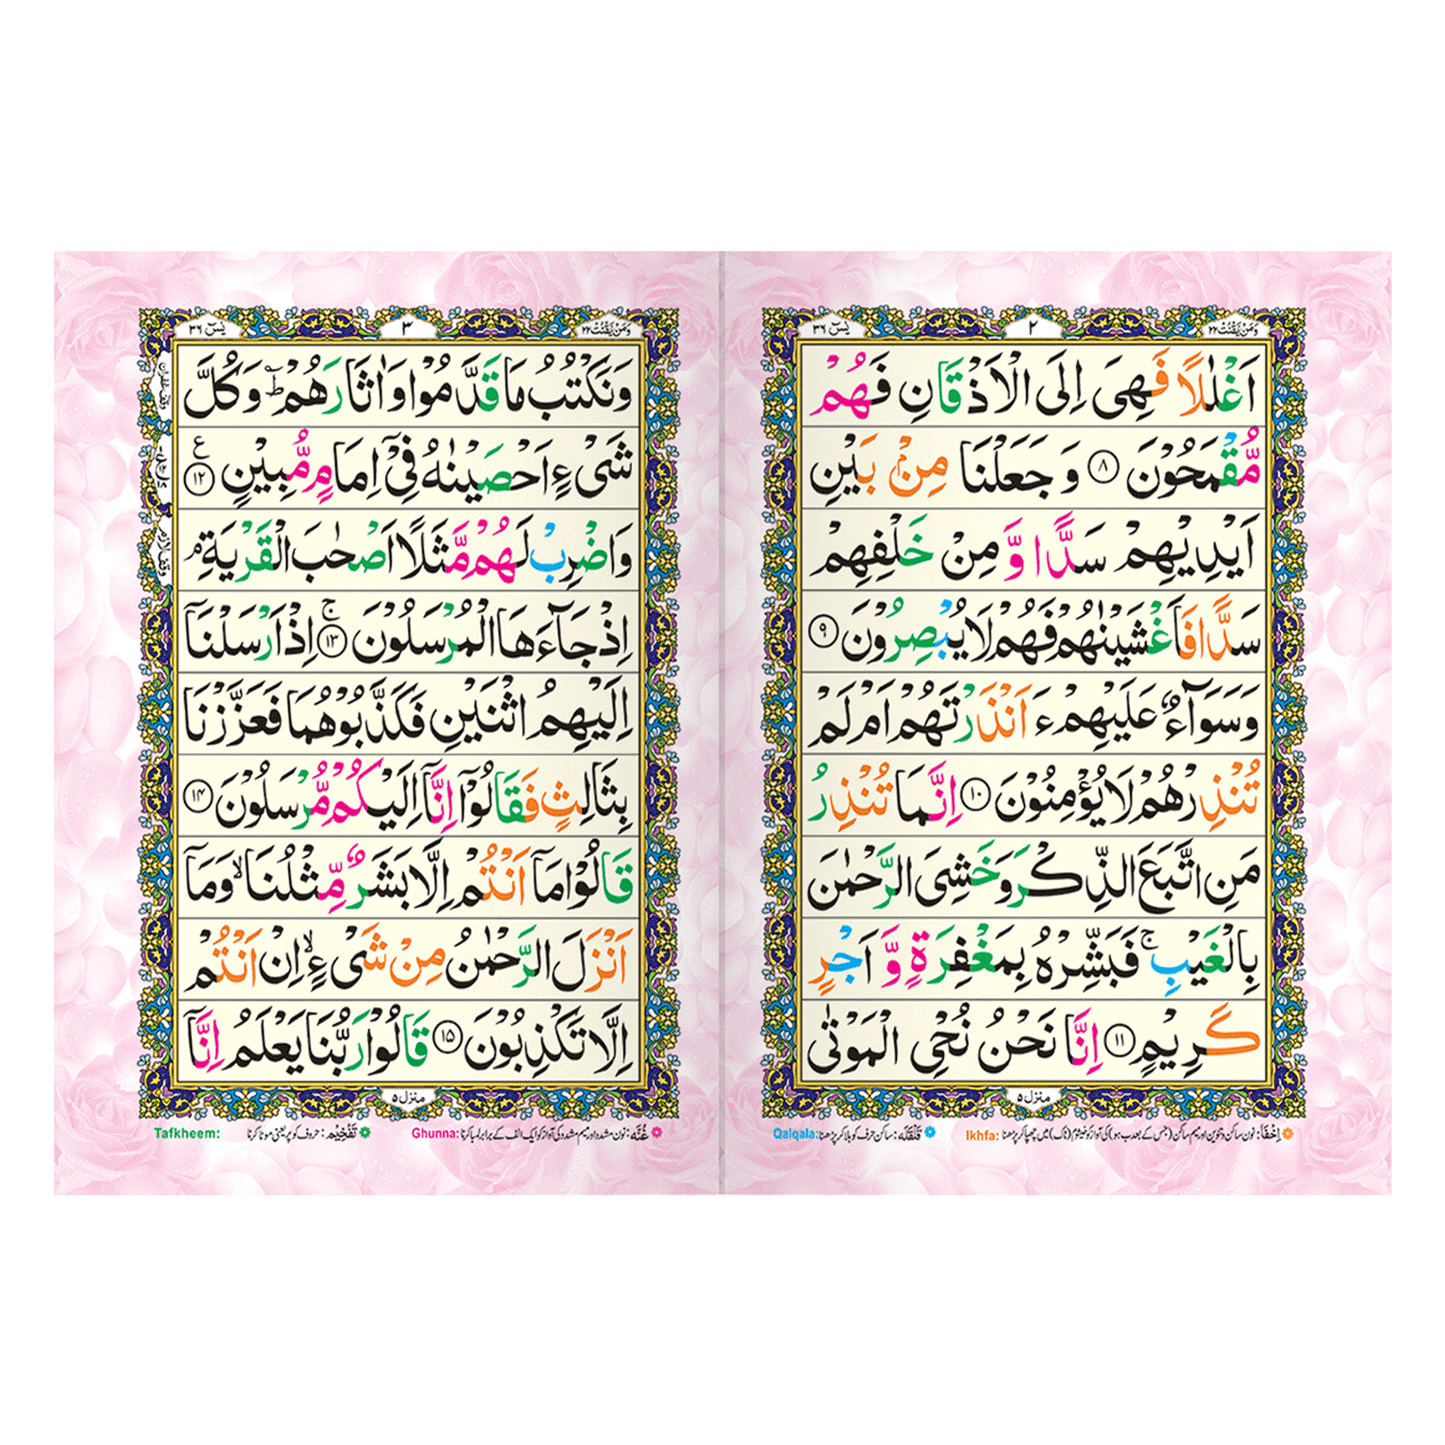 وَمَنْ يَّقْنُتْ ۲۲
۲
يٰسٓ ۳۶
اَغْلٰلًا فَهِىَ اِلَى الْاَذْقَانِ فَهُمْ
مُّقْمَحُوْنَ ۸ وَ جَعَلْنَا مِنْۢ بَيْنِ
اَيْدِيْهِمْ سَدًّا وَّ مِنْ خَلْفِهِمْ
سَدًّا فَاَغْشَيْنٰهُمْ فَهُمْ لَا يُبْصِرُوْنَ ۹
وَسَوَآءٌ عَلَيْهِمْ ءَ اَنْذَرْتَهُمْ اَمْ لَمْ
تُنْذِرْهُمْ لَا يُؤْمِنُوْنَ ۱۰ اِنَّمَا تُنْذِرُ
مَنِ اتَّبَعَ الذِّكْرَ وَخَشِىَ الرَّحْمٰنَ
بِالْغَيْبِ ۚ فَبَشِّرْهُ بِمَغْفِرَةٍ وَّ اَجْرٍ
كَرِيْمٍ ۱۱ اِنَّا نَحْنُ نُحْىِ الْمَوْتٰى
منزل ۵
اِخْفَا: نون ساکن و تنوین اور میم ساکن (جس کے بعد ب ہو) کی آواز کو خیشوم (ناک) میں چھپا کر پڑھنا Ikhfa:
قَلْقَلَه: ساکن حرف کو ہلا کر پڑھنا Qalqala:
وَمَنْ يَّقْنُتْ ۲۲
۳
يٰسٓ ۳۶
وَنَكْتُبُ مَا قَدَّمُوْا وَاٰثَارَهُمْ ؕ وَكُلَّ
شَىْءٍ اَحْصَيْنٰهُ فِىْٓ اِمَامٍ مُّبِيْنٍ ۱۲ ع
وَاضْرِبْ لَهُمْ مَّثَلًا اَصْحٰبَ الْقَرْيَةِ ۘ
اِذْ جَآءَهَا الْمُرْسَلُوْنَ ۱۳ ۚ اِذْ اَرْسَلْنَآ
اِلَيْهِمُ اثْنَيْنِ فَكَذَّبُوْهُمَا فَعَزَّزْنَا
بِثَالِثٍ فَقَالُوْٓا اِنَّآ اِلَيْكُمْ مُّرْسَلُوْنَ ۱۴
قَالُوْا مَآ اَنْتُمْ اِلَّا بَشَرٌ مِّثْلُنَا ۙ وَمَآ
اَنْزَلَ الرَّحْمٰنُ مِنْ شَىْءٍ ۙ اِنْ اَنْتُمْ
اِلَّا تَكْذِبُوْنَ ۱۵ قَالُوْا رَبُّنَا يَعْلَمُ اِنَّآ
منزل ۵
وقف غفران
وقف لازم
غُنَّه: نون مشدد اور میم مشدد کی آواز کو ایک الف کے برابر لمبا کرنا Ghunna:
تَفْخِيْم: حروف کو پر یعنی موٹا کرنا Tafkheem: